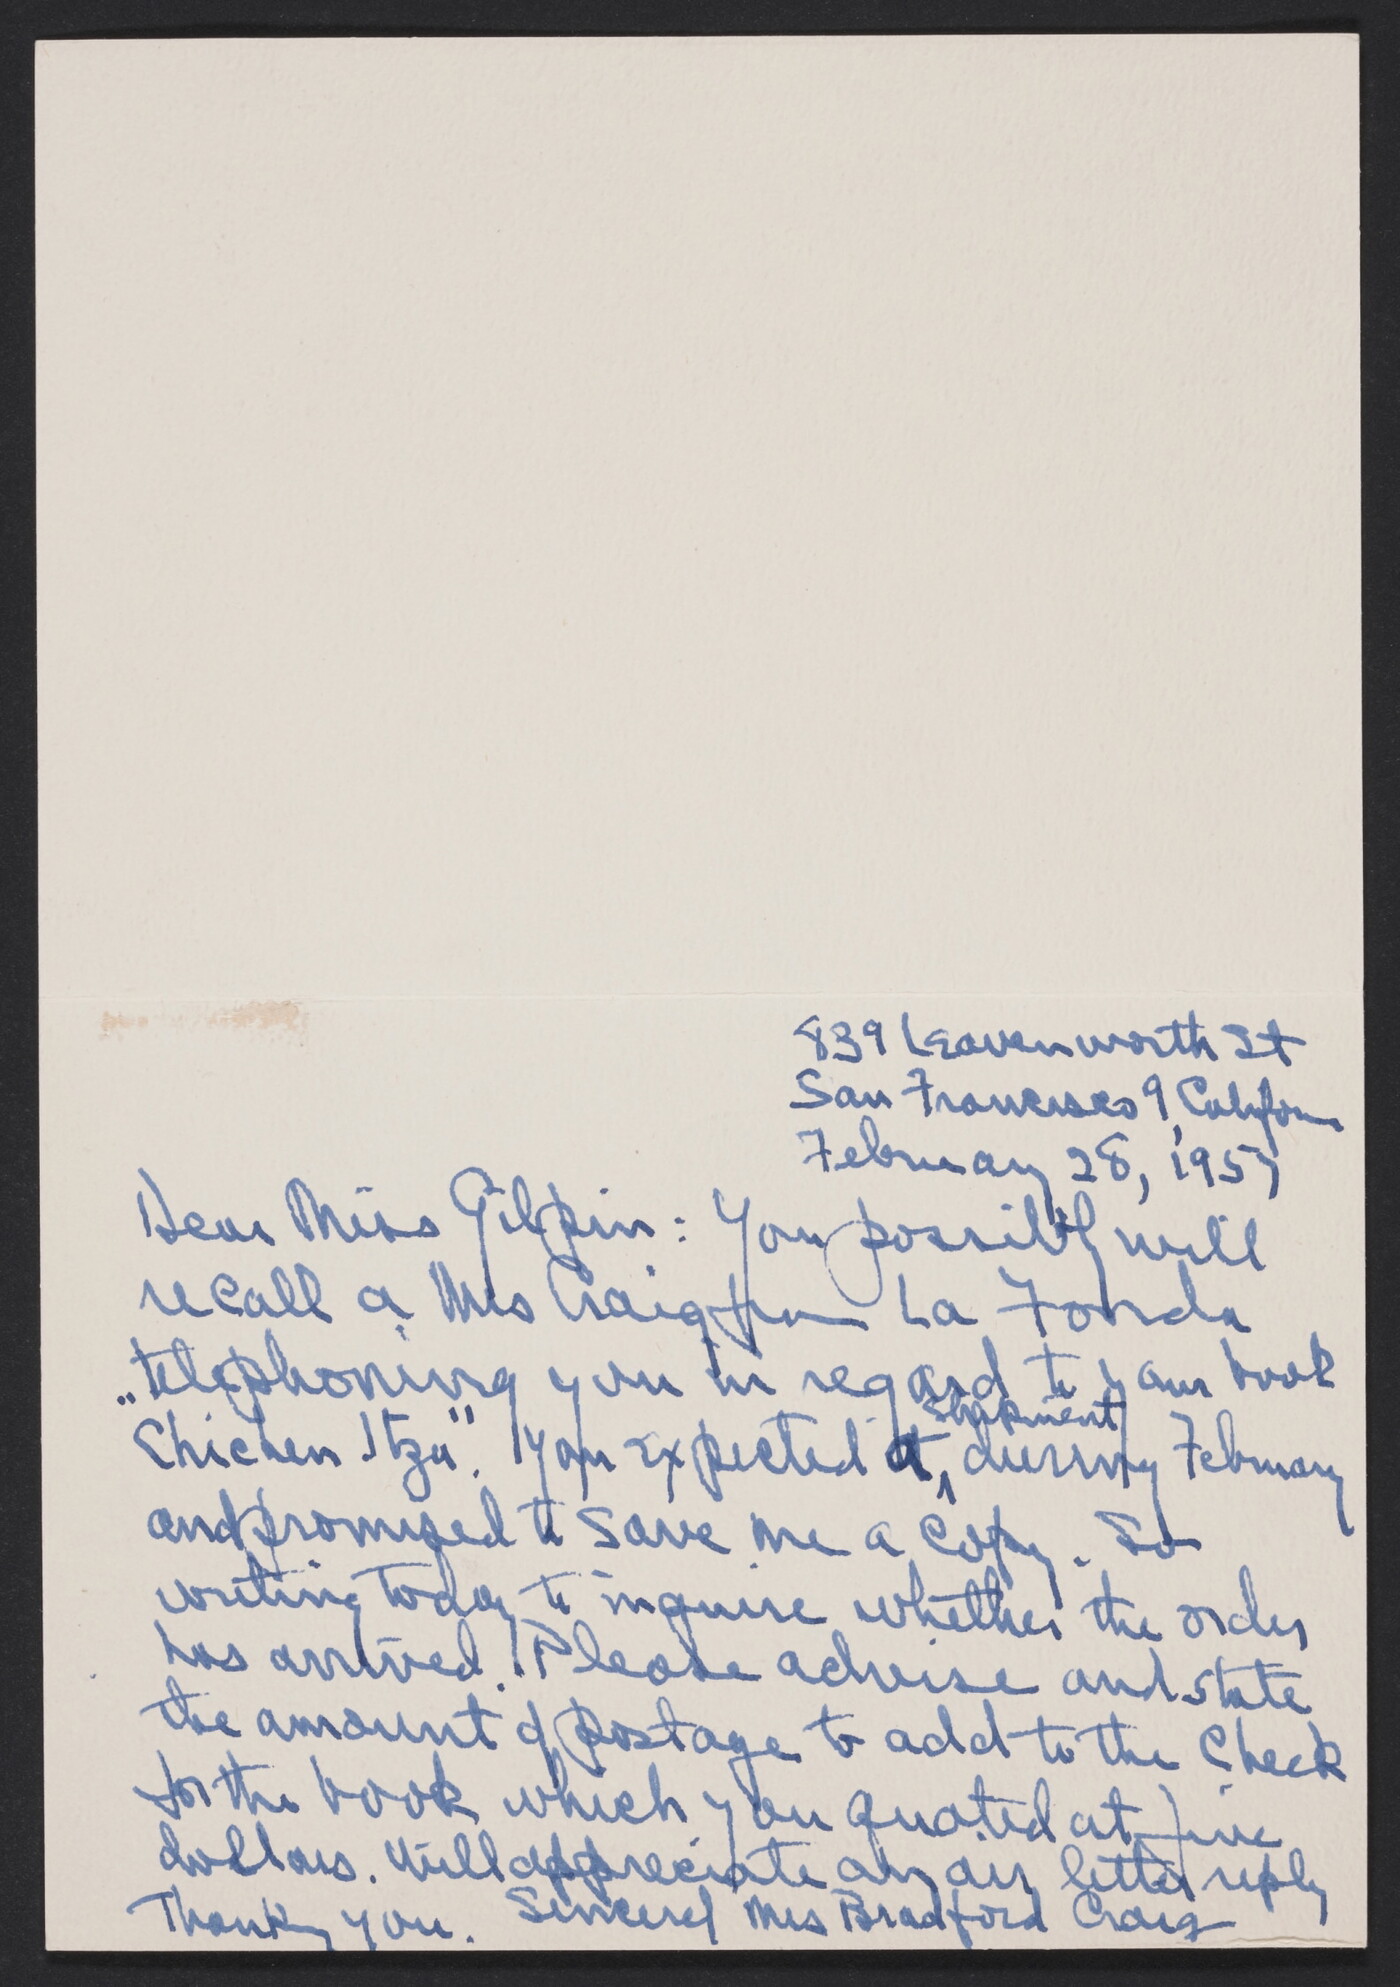 839 Leavenworth St
San Francisco 9, Californ
February 28, 1957
Dear Miss Gilpin: You possibly will
recall a Mrs Craig from La Fonda
telephoning you in regard to your book
"Chichen Itza". You expected a shipment during February
and promised to save me a copy. So
writing today to inquire whether the order
has arrived. Please advise and state
the amount of postage to add to the check
for the book which you quoted at five
dollars. Will appreciate an air letter reply
Thank you. Sincerely Mrs Bradford Craig